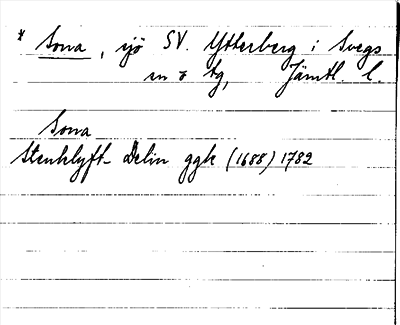 * Sona, sjö SV. Ytterberg i Svegs
sn o tg, Jämtl. l.
Sona
Stenklyft Delin ggk (1688) 1782